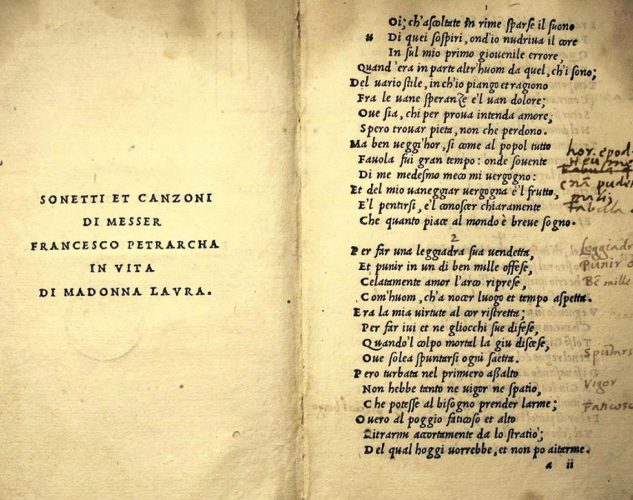 SONETTI ET CANZONI
DI MESSER
FRANCESCO PETRARCHA
IN VITA
DI MADONNA LAVRA.
Oi; ch'ascoltate in rime sparse il suono
Di quei sospiri, ond'io nudriva il core
In sul mio primo giovenile errore,
Quand'era in parte altr'huom da quel, ch'i sono;
Del vario stile, in ch'io piango et ragiono
Fra le vane speranze e'l van dolore;
Ove sia, chi per prova intenda amore,
Spero trovar pieta, non che perdono.
Ma ben veggi'hor, si come al popol tutto
Favola fui gran tempo: onde sovente
Di me medesmo meco mi vergogno:
Et del mio vaneggiar vergogna è'l frutto,
E'l pentirsi, e'l conoscer chiaramente
Che quanto piace al mondo è breve sogno.
hor. epod
fabula
2
Per far una leggiadra sua vendetta,
Et punir in un di ben mille offese,
Celatamente amor l'arco riprese,
Com'huom, ch'a nocer luogo et tempo aspetta.
Era la mia virtute al cor ristretta;
Per far ivi et ne gliocchi sue difese,
Quando'l colpo mortal la giu discese,
Ove solea spuntarsi ogni saetta.
Pero turbata nel primero assalto
Non hebbe tanto ne vigor ne spatio,
Che potesse al bisogno prender larme;
Overo al poggio faticoso et alto
Ritrarmi accortamente da lo stratio;
Del qual hoggi vorrebbe, et non po aitarme.
Leggiadr
Punir
Bē mille
Spuntars
Vigor
Faticoso
a ii